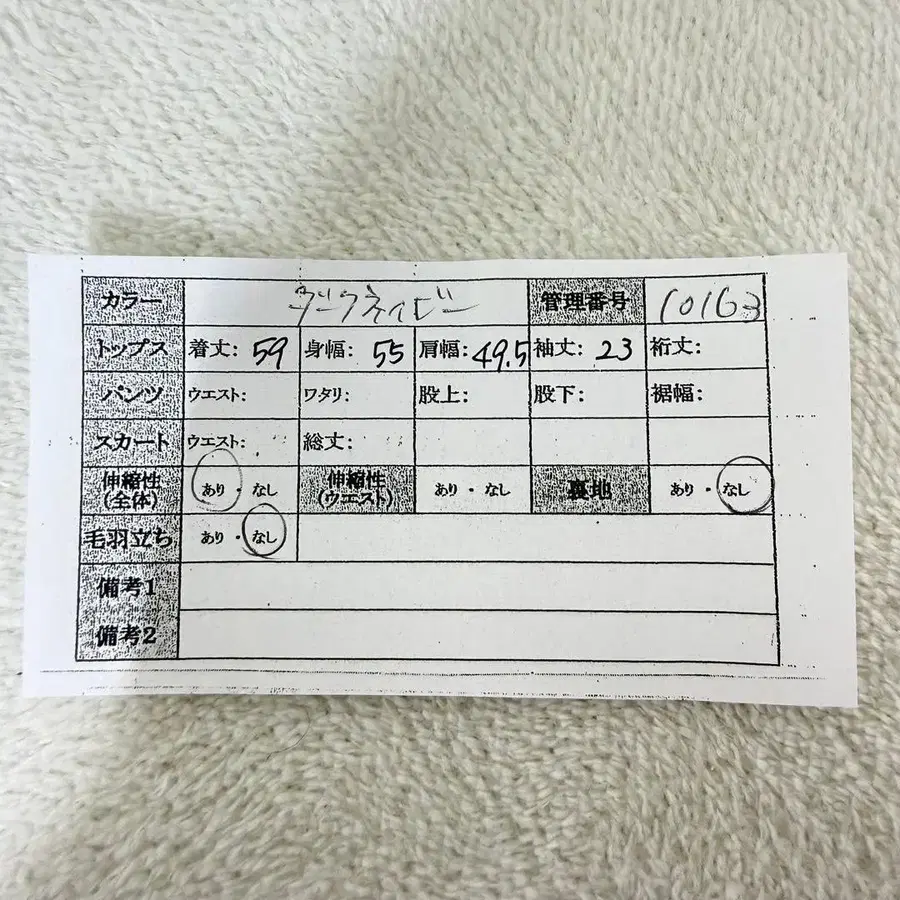 カラー ダークネイビー 管理番号 10163
トップス 着丈: 59 身幅: 55 肩幅: 49.5 袖丈: 23 裄丈:
パンツ ウエスト: ワタリ: 股上: 股下: 裾幅:
スカート ウエスト: 総丈:
伸縮性(全体) あり・なし 伸縮性(ウエスト) あり・なし 裏地 あり・なし
毛羽立ち あり・なし
備考1
備考2